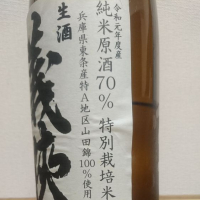 令和元年度産
純米原酒70%特別栽培米
兵庫県東条産特A地区山田錦100%使用
生酒
義侠